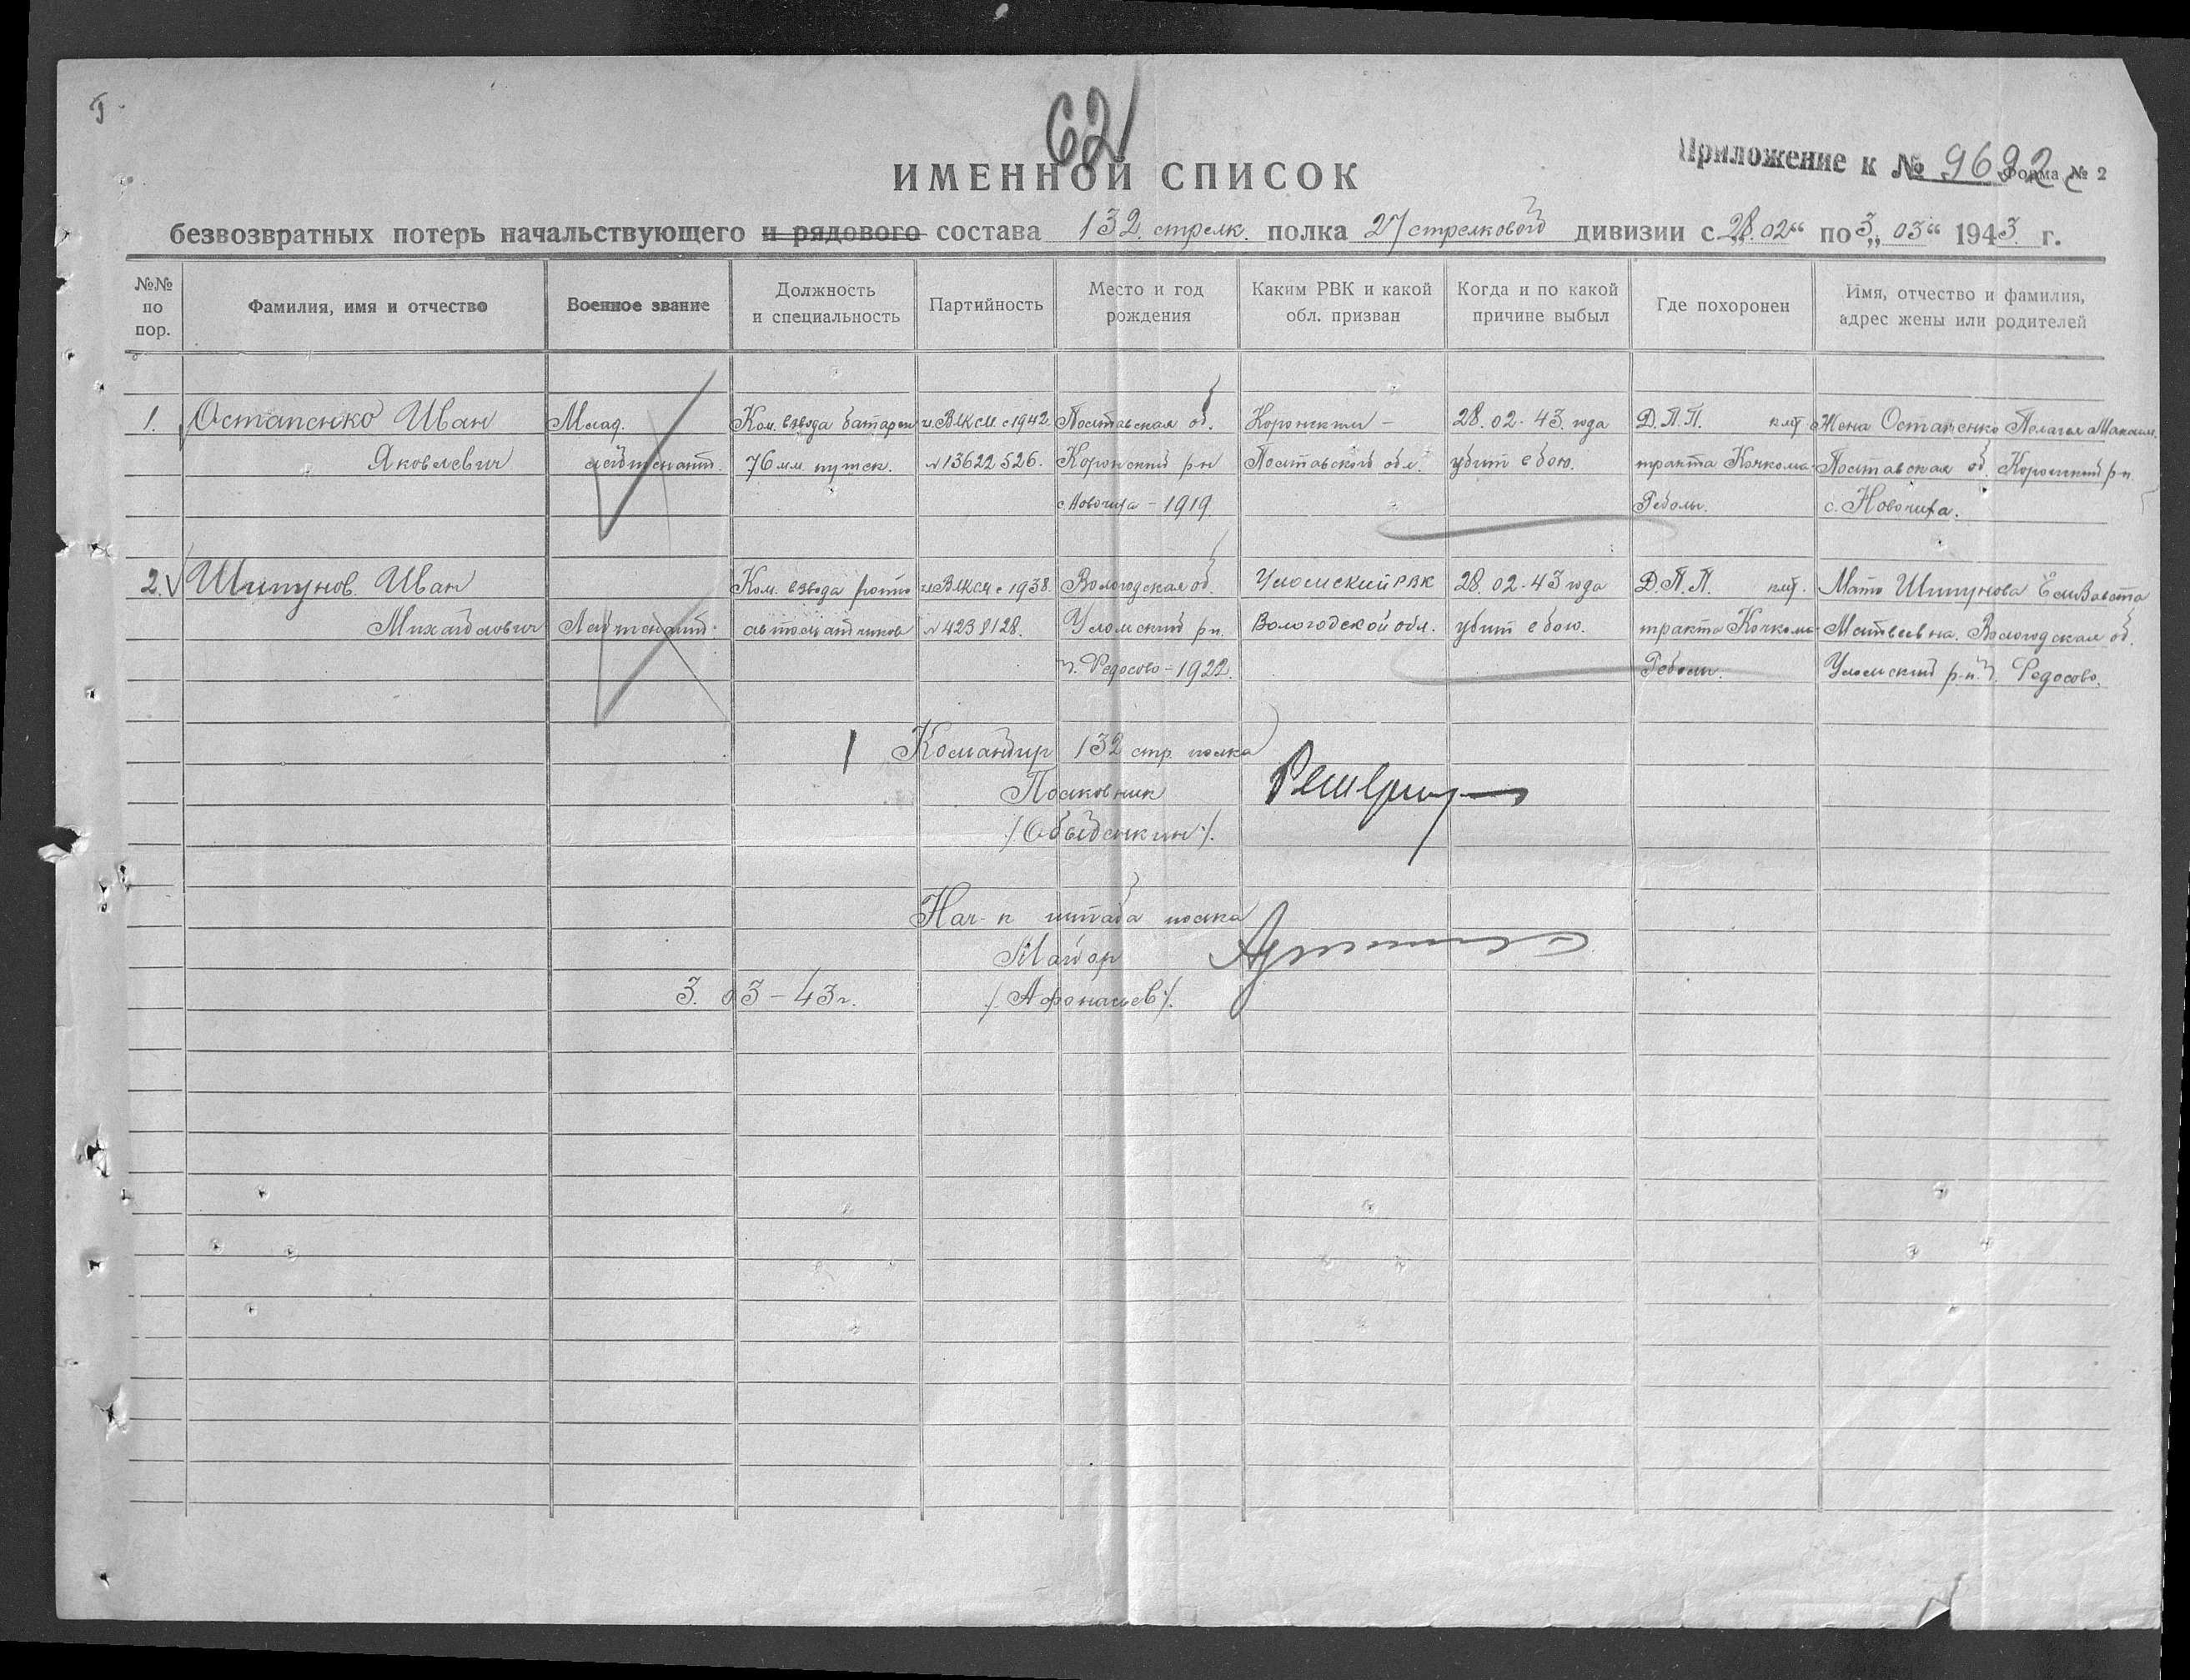 62
Приложение к № 9692с
Форма № 2
ИМЕННОЙ СПИСОК
безвозвратных потерь начальствующего и рядового состава 132 стрелк. полка 27 стрелковой дивизии с „28.02“ по „3 03“ 1943 г.
№№ по пор.
Фамилия, имя и отчество
Военное звание
Должность и специальность
Партийность
Место и год рождения
Каким РВК и какой обл. призван
Когда и по какой причине выбыл
Где похоронен
Имя, отчество и фамилия, адрес жены или родителей
1. Остапенко Иван Млад. Ком. взвода батареи чл.ВЛКСМ с 1942 Полтавская об. 28.02.43 года Д.П.П. клт Жена Остапенко Полагея Максим.
Яковлевич лейтенант. 76 мм пушек. №13622526. р-н Полтавской обл. убит в бою. тракта Кочкома- Полтавская об. р-н
с. Новочиха - 1919. Реболы. с. Новочиха.
2. Шипунов Иван Ком. взвода роты чл.ВЛКСМ с 1938. Вологодская об. Уломский РВК 28.02.43 года Д.П.П. клт. Мать Шипунова Елизавета
Михайлович Лейтенант. автоматчиков №4238128. Уломский р-н. Вологодской обл. убит в бою. тракта Кочкома- Матвеевна. Вологодская об.
Федосово - 1922. Реболы. Уломский р-н. Федосово.
Командир 132 стр. полка
Полковник
/Обыденкин/.
Нач-к штаба полка
Майор
3. 03-43г. /Афонасьев/.